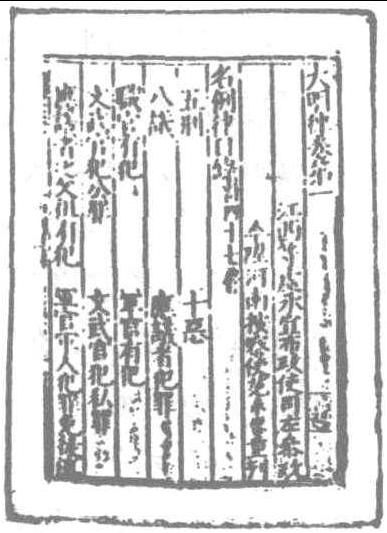 大明律卷第一
江西等處承宣布政使司左參政
今陞河南按察使范永鑾重刊
名例律目錄計四十七條
五刑 十惡
八議 應議者犯罪
職官有犯 軍官有犯
文武官犯公罪 文武官犯私罪
應議者之父祖有犯 軍官軍人犯罪免徒流